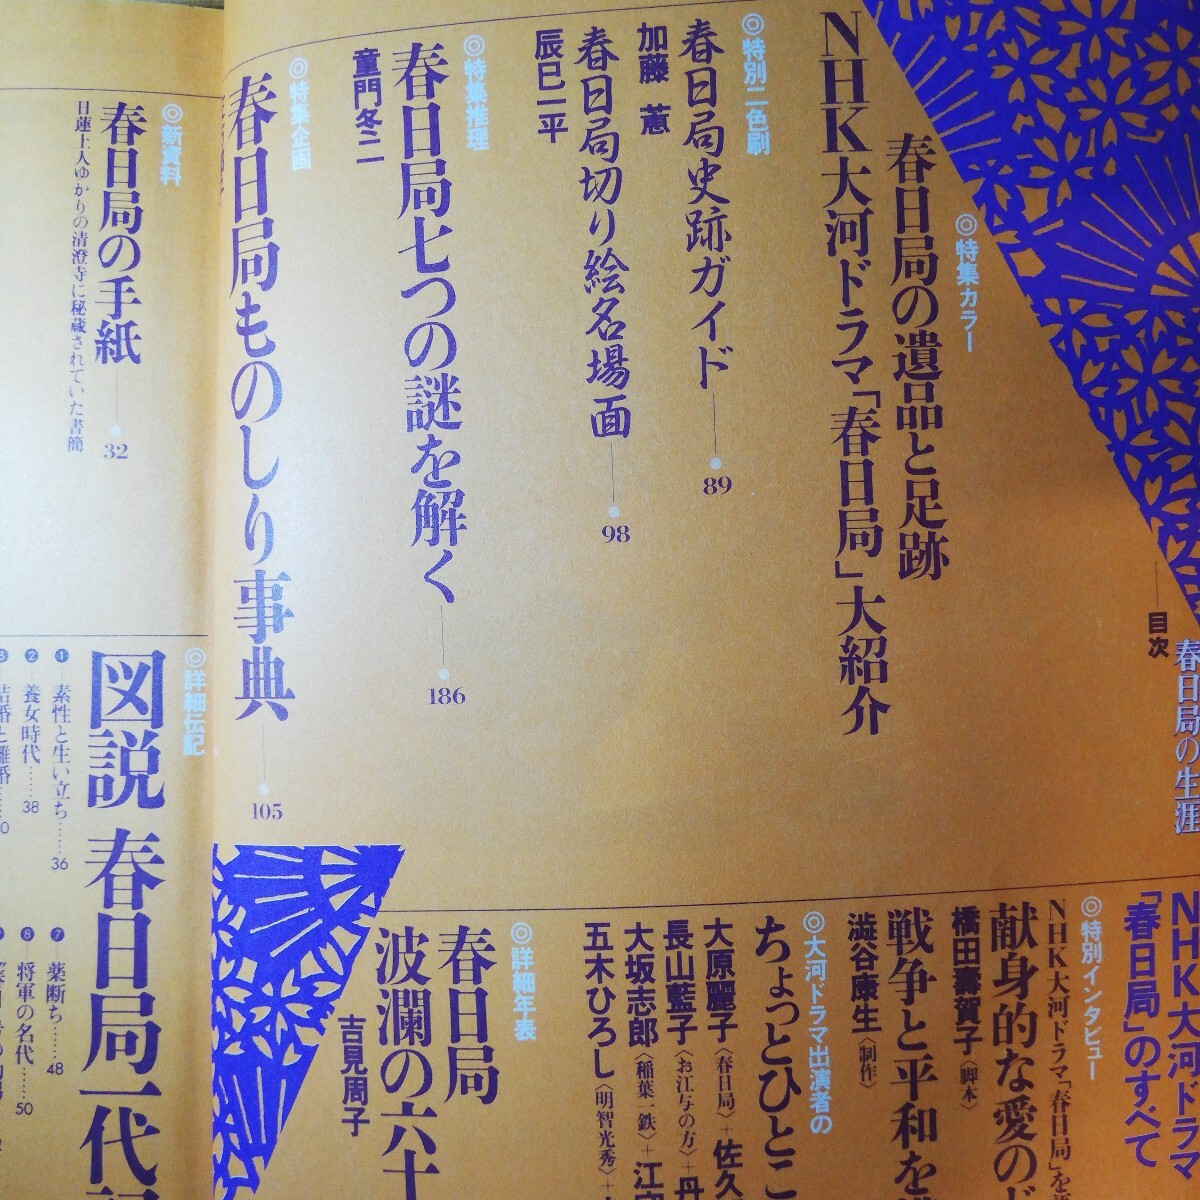 春日局の生涯
目次
◎特集カラー
春日局の遺品と足跡
NHK大河ドラマ「春日局」大紹介
◎特別二色刷
春日局史跡ガイド 89
加藤 蕙
春日局切り絵名場面 98
辰巳一平
◎特集推理
春日局七つの謎を解く 186
童門冬二
◎特集企画
春日局ものしり事典 105
◎新資料
春日局の手紙 32
日蓮上人ゆかりの清澄寺に秘蔵されていた書簡
NHK大河ドラマ
「春日局」のすべて
◎特別インタビュー
NHK大河ドラマ「春日局」を
献身的な愛の
橋田壽賀子〈脚本〉
戦争と平和を
澁谷康生〈制作〉
◎大河ドラマ出演者の
ちょっとひとこ
大原麗子〈春日局〉+佐久
長山藍子〈お江与の方〉+丹
大坂志郎〈稲葉一鉄〉+江
五木ひろし〈明智光秀〉+
◎詳細年表
春日局
波瀾の六十
吉見周子
◎詳細伝記
図説 春日局一代
❶ 素性と生い立ち……36
❷ 養女時代……38
結婚と離婚……
❼ 薬断ち……48
❽ 将軍の名代……50